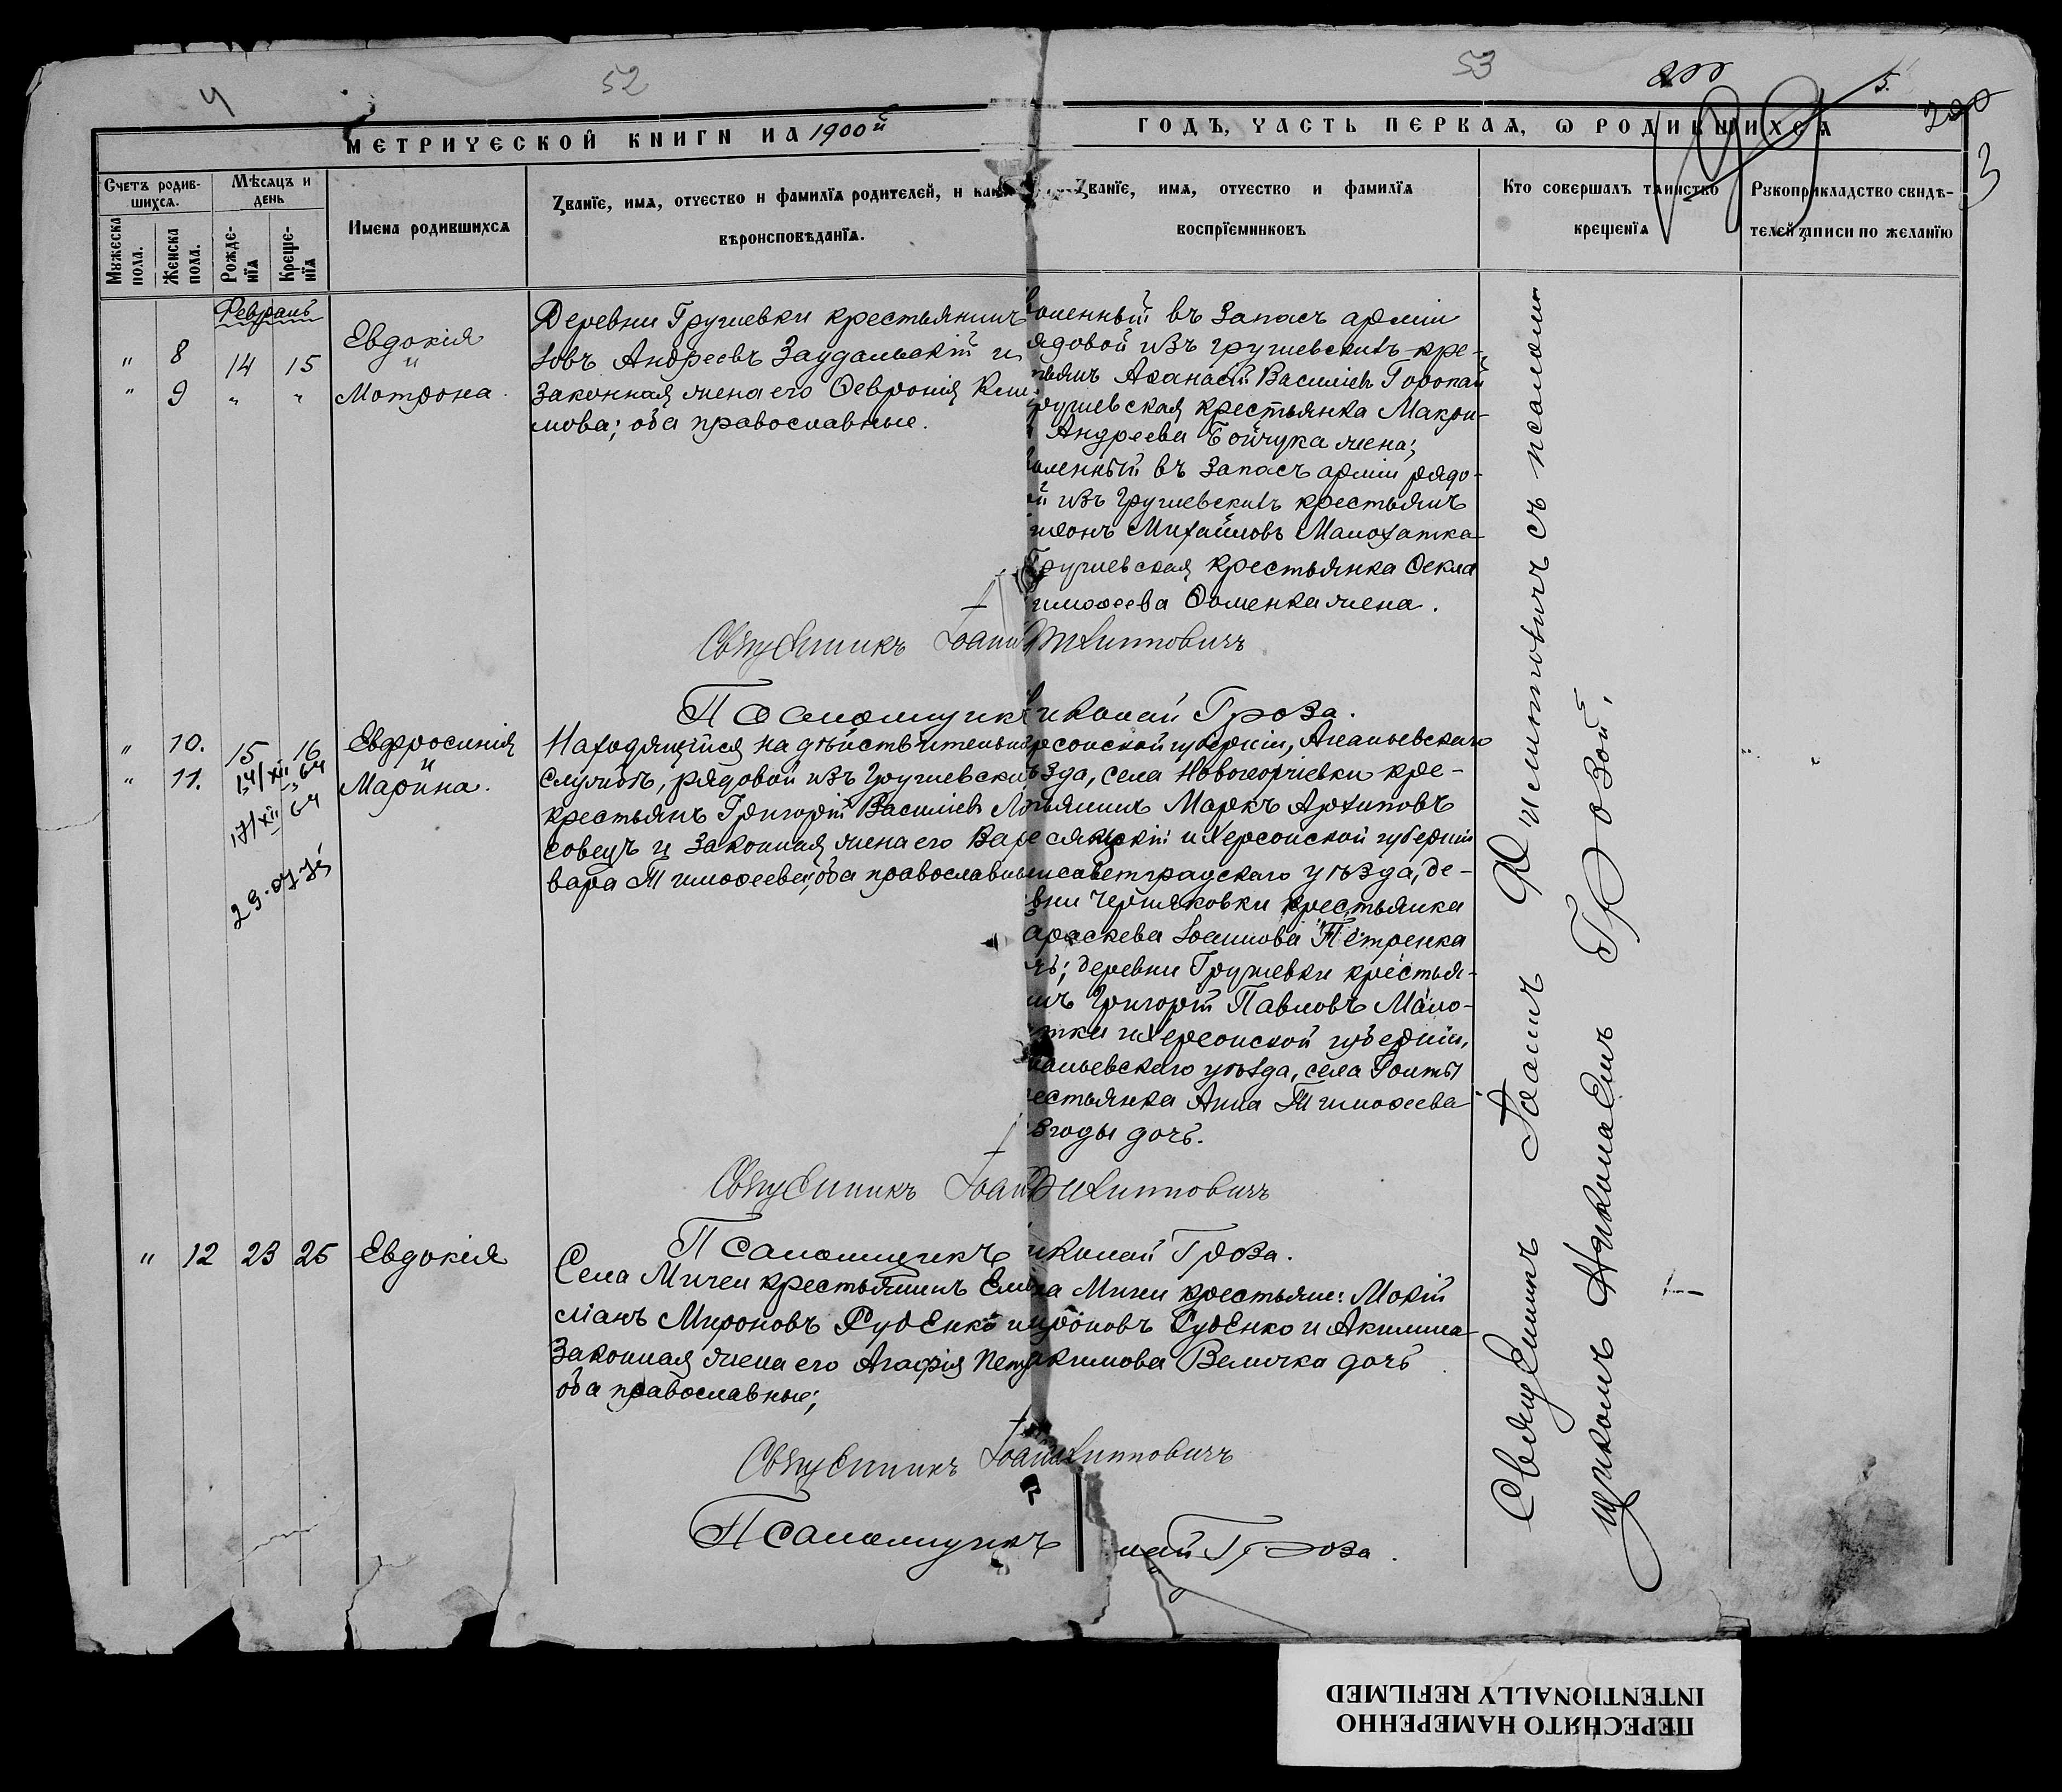 4
52
53
200
5.
200
3
МЕТРИЧЕСКОЙ КНИГИ НА 1900й
ГОДЪ, ЧАСТЬ ПЕРВАЯ, Ѡ РОДИВШИХСЯ
Счетъ родив-
шихся.
Мѣсяцъ и
день
Мужеска
пола.
Женска
пола.
Рожде-
нїя
Креще-
нїя
Имена родившихся
Званїе, имя, отчество и фамилїя родителей, и какого
вѣроисповѣданїя.
Званїе, имя, отчество и фамилїя
воспрїемниковъ
Кто совершалъ таинство
крещенїя
Рукоприкладство свидѣ-
телей записи по желанїю
Февраль
" 8 14 15 Евдокія
и
" 9 " " Мотрона.
Деревни Грушевки крестьянинъ
Андреевъ Заудальскій и
законная жена его Ѳевронія Кли-
мова; оба православные.
воленный въ запасъ арміи
ядовой изъ грушевскихъ кре-
тьянъ Аѳанасій Василіевъ Горопай
рушевская крестьянка Макри-
Андреева Бойчука жена;
воленный въ запасъ арміи рядо-
й изъ грушевскихъ крестьянъ
Михайловъ Малохатка
Грушевская крестьянка Ѳекла
имоѳеева Ѳоменка жена.
Священникъ Іоаннъ Филипповичъ
Псаломщикъ иколай Гроза.
" 10. 15 16 Евфросинія
и
" 11. " " Марина.
14/XII 64
17/XII 64
Находящійся на дѣйствительной
службѣ, рядовой изъ Грушевскихъ
крестьянъ Григорій Василіевъ
совецъ и законная жена его Вар
вара Тимоѳеева; оба православные
рсонской губерніи, Ананьевскаго
ѣзда, села Новогеоргіевки кре-
тьянинъ Маркъ Архиповъ
и Херсонской губерніи
лисаветградскаго уѣзда, де-
вни Черняковки крестьянка
араскева Іоаннова Петренка
чь; деревни Грушевки крестья-
инъ Григорій Павловъ Мало-
тка и Херсонской губерніи,
наньевскаго уѣзда, села Гонты
естьянка Анна Тимоѳеева
годы дочь.
Священникъ Іоаннъ Филипповичъ
Псаломщикъ иколай Гроза.
" 12 23 25 Евдокія
Села Мигеи крестьянинъ Еми
ліанъ Мироновъ Руденко и
законная жена его Агафія Пет
оба православные;
ла Мигеи крестьяне: Мокій
ироновъ Руденко и Акилина
акимова Величка дочь
Священникъ Іоаннъ Филипповичъ
Псаломщикъ лай Гроза.
Священникъ Іоаннъ Филипповичъ съ псалом-
щикомъ Николаемъ Грозой.
ПЕРЕСНЯТО НАМЕРЕННО
INTENTIONALLY REFILMED